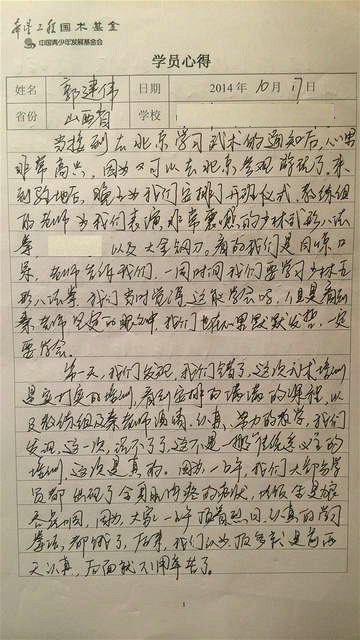 希望工程国术基金
中国青少年发展基金会
学员心得
姓名 郭建伟 日期 2014年10月17日
省份 山西省 学校
当接到去北京学习武术的通知后，心里
非常高兴，因为又可以去北京参观游玩了，来
到驻地后，晚上为我们安排了开班仪式，教练组
的老师为我们表演非常震憾的少林五形八法
拳 以及大金钢刀。看的我们是目瞪口
呆，老师告诉我们，一周时间我们要学习少林五
形八法拳，我们当时觉得，这能学会吗，但是看到
秦老师坚定的眼神，我们也在心里默默发誓，一定
要学会。
第一天，我们发现，我们错了，这次武术培训
是实打实的培训，看到安排的满满的课程，以
及教练组及秦老师 认真、努力的教学，我们
发现，这一次，玩不了了，这不是 形式主义的
培训，这次是真的。因为，一上午，我们大部分学
员都出现了全身肌肉疼的症状，大饭
因为，大家一上午顶着烈日，认真的学习
拳法，都饿了，后来，我们以为顶多就是前两
天认真，后面就不用辛苦了。
1